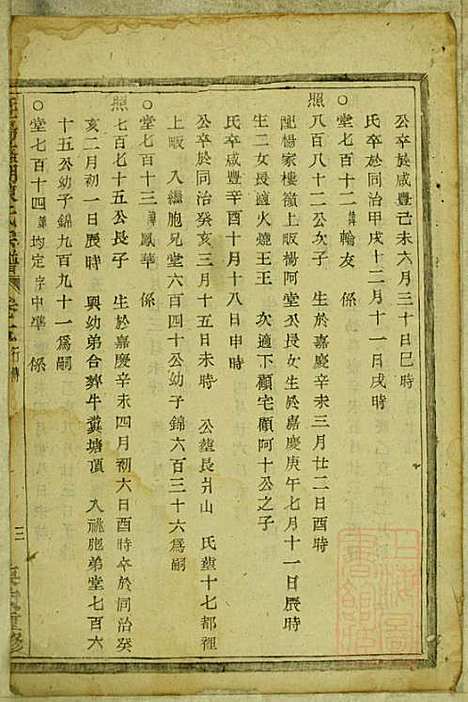 公卒於咸豐己未六月三十日巳時
氏卒於同治甲戌十二月十一日戌時
○堂七百十二諱翰友 係
照八百八十二公次子 生於嘉慶辛未三月廿二日酉時
配楊家樓嶺上畈楊阿堂公長女生於嘉慶庚午七月十一日辰時
生二女長適火燒王王 次適下顧宅顧阿十公之子
氏卒咸豐辛酉十月十八日申時
公卒於同治癸亥三月十五日未時 公塟長爿山 氏塟十七都裡
上畈 入繼胞兄堂六百四十公幼子錦六百三十六為嗣
○堂七百十三諱鳳華 係
照七百七十五公長子 生於嘉慶辛未四月初六日酉時卒於同治癸
亥二月初一日辰時 與幼弟合葬牛糞塘頂 入祧胞弟堂七百六
十五公幼子錦九百九十一為嗣
○堂七百十四諱均定字中華 係
三